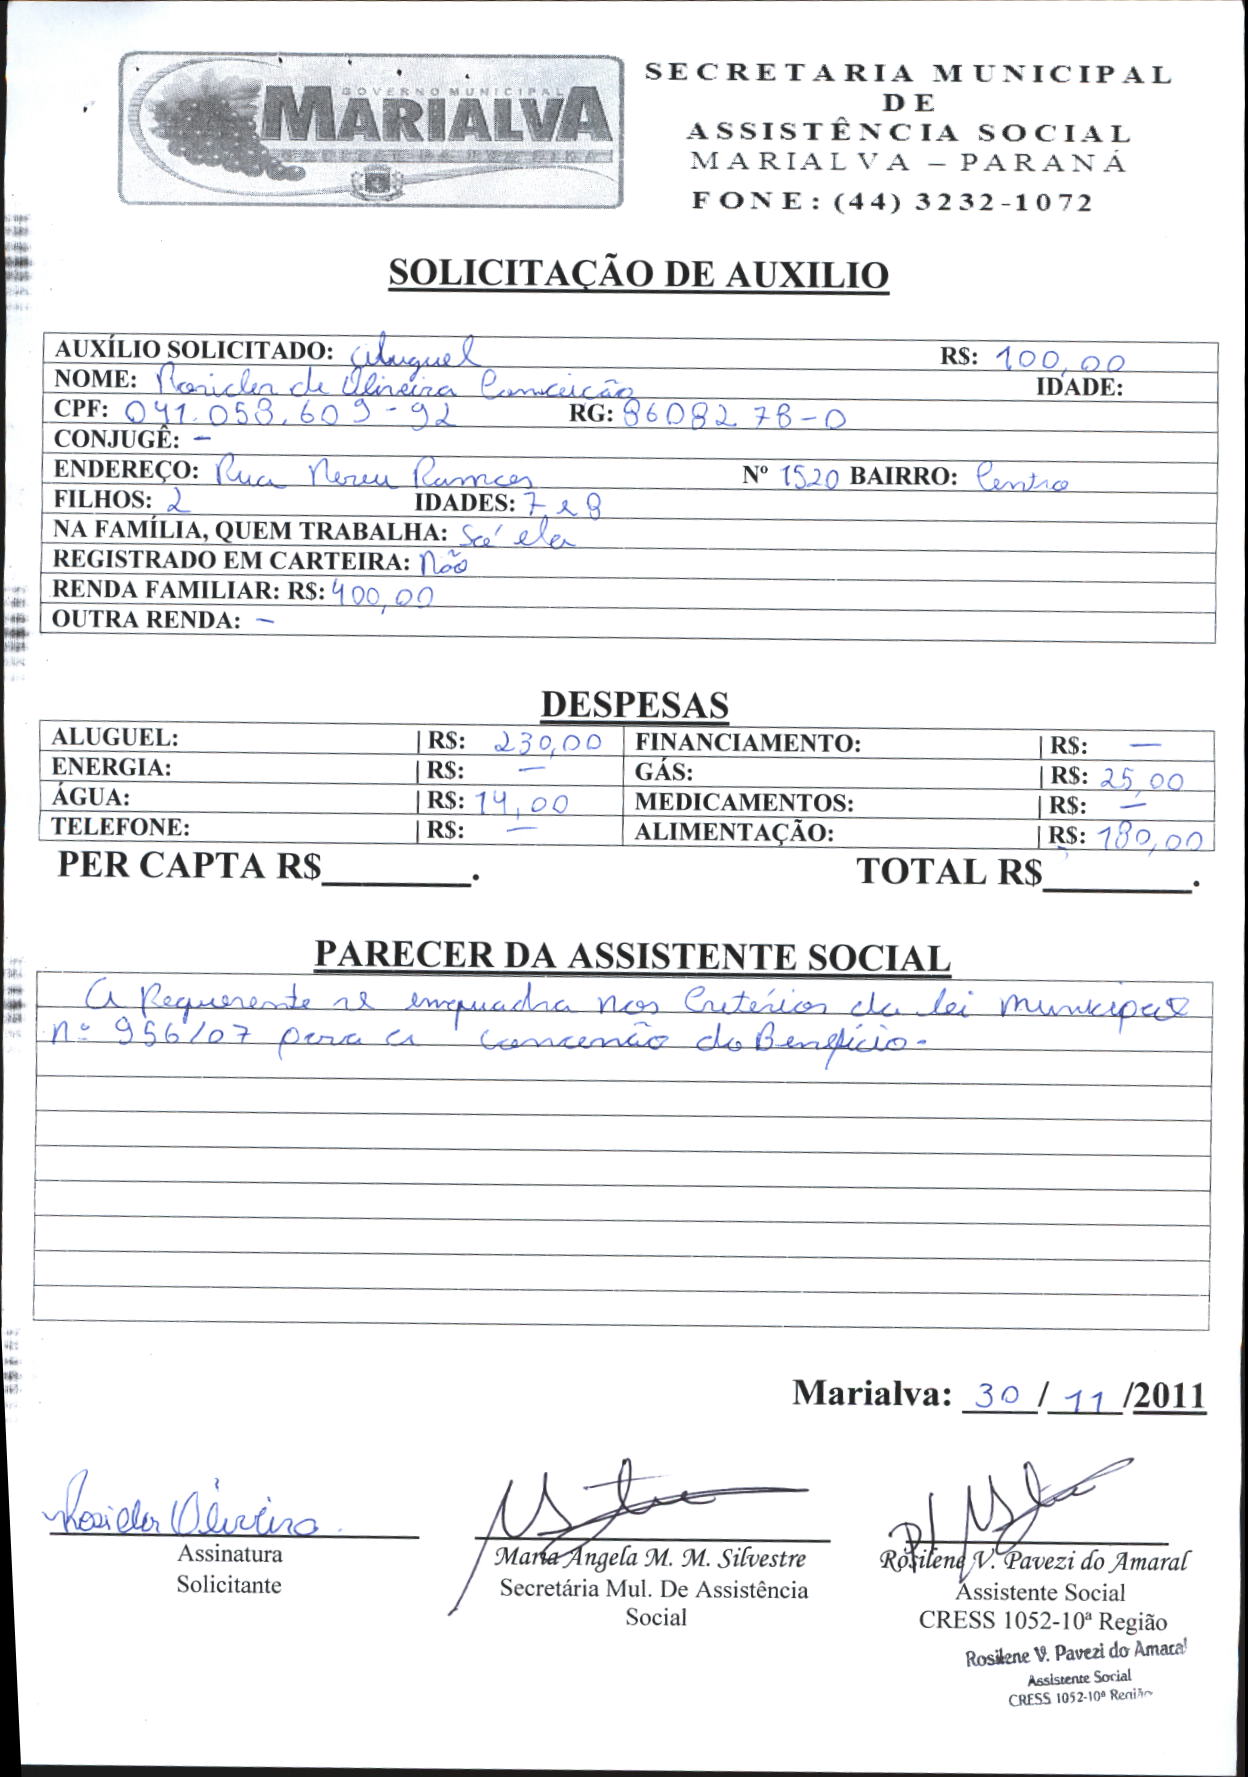 GOVERNO MUNICIPAL
MARIALVA
SECRETARIA MUNICIPAL
DE
ASSISTÊNCIA SOCIAL
MARIALVA – PARANÁ
FONE: (44) 3232-1072
SOLICITAÇÃO DE AUXILIO
AUXÍLIO SOLICITADO: Aluguel R$: 100,00
NOME: Rosicler de Oliveira Conceição IDADE:
CPF: 041.058.609-92 RG: 8608278-0
CONJUGÊ: –
ENDEREÇO: Rua Nereu Ramos Nº 1520 BAIRRO: Centro
FILHOS: 2 IDADES: 7 e 8
NA FAMÍLIA, QUEM TRABALHA: Só ela
REGISTRADO EM CARTEIRA: Não
RENDA FAMILIAR: R$: 400,00
OUTRA RENDA: –
DESPESAS
ALUGUEL: | R$: 230,00 FINANCIAMENTO: | R$: —
ENERGIA: | R$: — GÁS: | R$: 25,00
ÁGUA: | R$: 14,00 MEDICAMENTOS: | R$: —
TELEFONE: | R$: — ALIMENTAÇÃO: | R$: 180,00
PER CAPTA R$________. TOTAL R$________.
PARECER DA ASSISTENTE SOCIAL
A Requerente se enquadra nos Critérios da lei municipal
nº 956/07 para a concessão do Benefício.
Marialva: 30 / 11 /2011
Rosicler Oliveira
Assinatura
Solicitante
Maria Angela M. M. Silvestre
Secretária Mul. De Assistência
Social
Rosilene V. Pavezi do Amaral
Assistente Social
CRESS 1052-10ª Região
Rosilene V. Pavezi do Amaral
Assistente Social
CRESS 1052-10ª Região